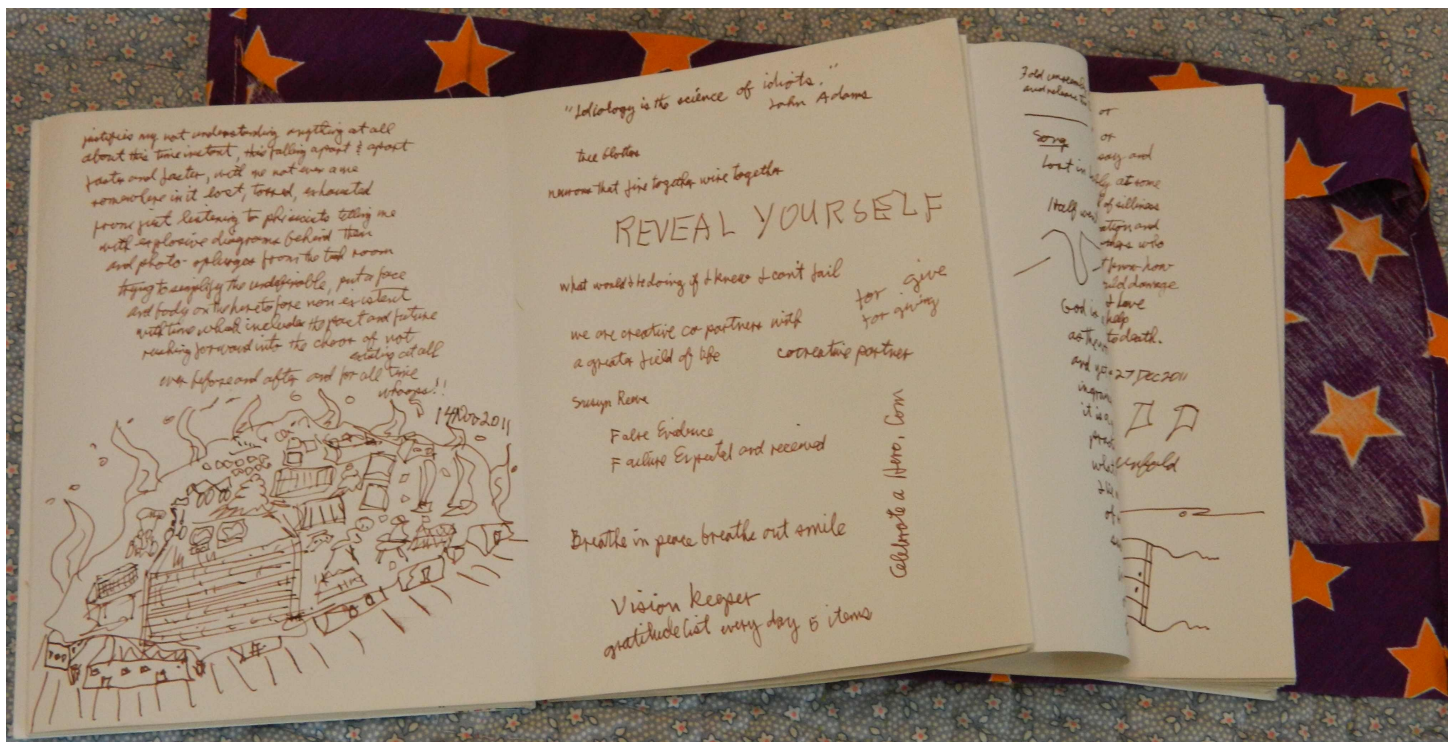 justifies my not understanding anything at all
about this time instant, this falling apart & apart
faster and faster, with me not even a me
somewhere in it lost, torred, exhausted
from just listening to phisicists telling me
with explosive diagrams behind them
and photo-splurges from the
trying to simplify the undefinable, put a face
and body on the heretofore non existent
with time which includes its past and future
reaching forward into the of not
existing at all
ever before and after and for all time
whoops!!
14 Nov 2011
"Idiology is the science of idiots."
John Adams
tree blotter
neurons that fire together wire together
REVEAL YOURSELF
what would I be doing if I knew I can't fail
for give
for giving
we are creative co partners with
a greater field of life
cocreative partner
Susyn Reeve
False Evidence
Failure Expected and received
Celebrate a Hero. Com
Breathe in peace breathe out smile
Vision Keeper
gratitude list every day 5 items
Fold
and release
Song
Lost in
Half
God is
as the
and
it is a
of
or
or
say and
at some
of silliness
and
who
how
damage
& love
help
to death.
27 Dec 2011
unfold